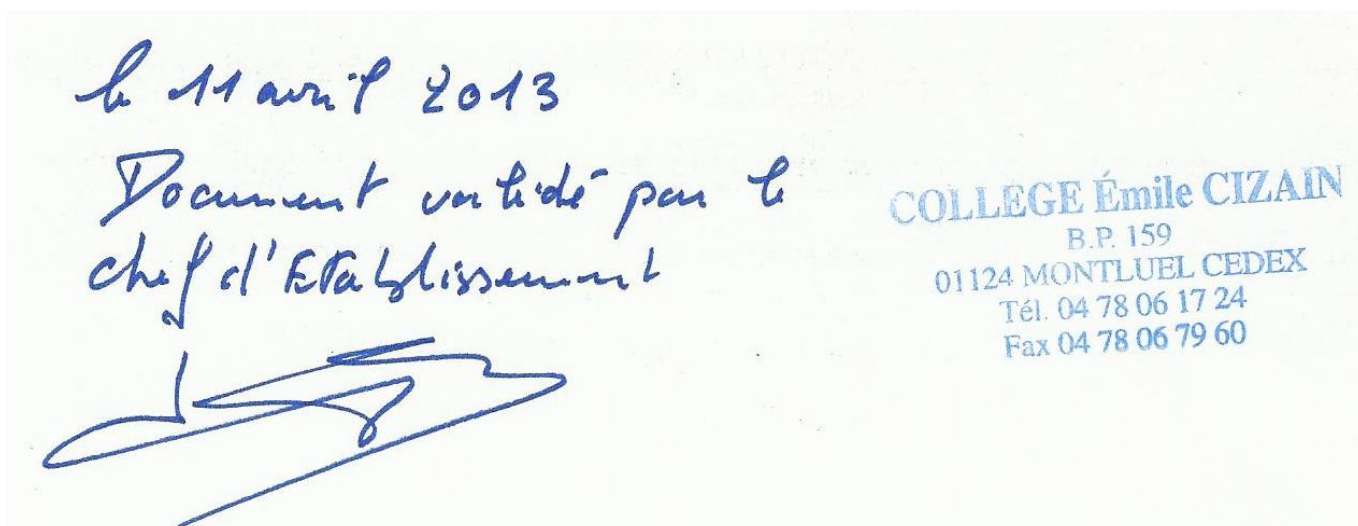 le 11 avril 2013
Document validé par le
chef d'Etablissement
COLLEGE Émile CIZAIN
B.P. 159
01124 MONTLUEL CEDEX
Tél. 04 78 06 17 24
Fax 04 78 06 79 60